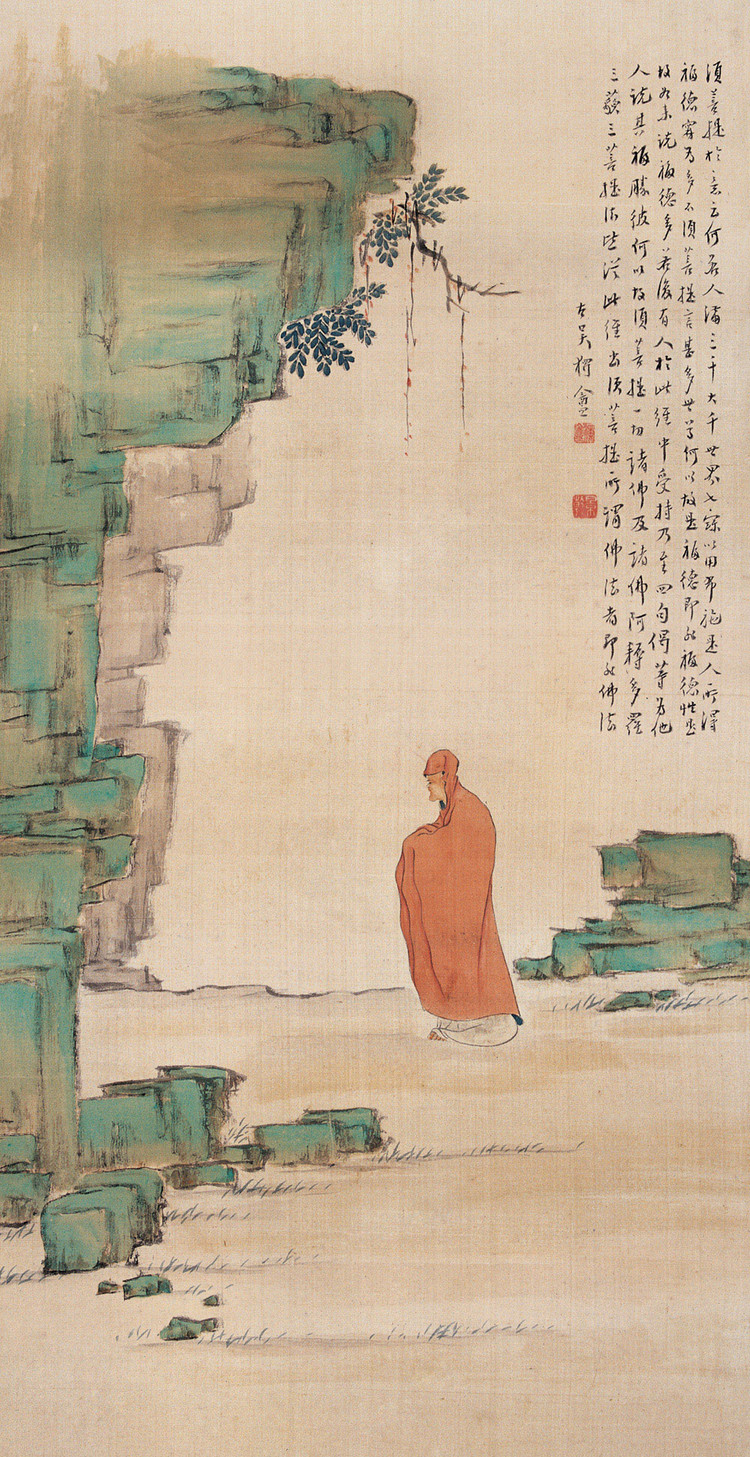 須菩提於意云何若人滿三千大千世界七寶以用布施是人所得
福德寧為多不須菩提言甚多世尊何以故是福德即非福德性是
故如來說福德多若復有人於此經中受持乃至四句偈等為他
人說其福勝彼何以故須菩提一切諸佛及諸佛阿耨多羅
三藐三菩提法皆從此經出須菩提所謂佛法者即非佛法
古吳盦